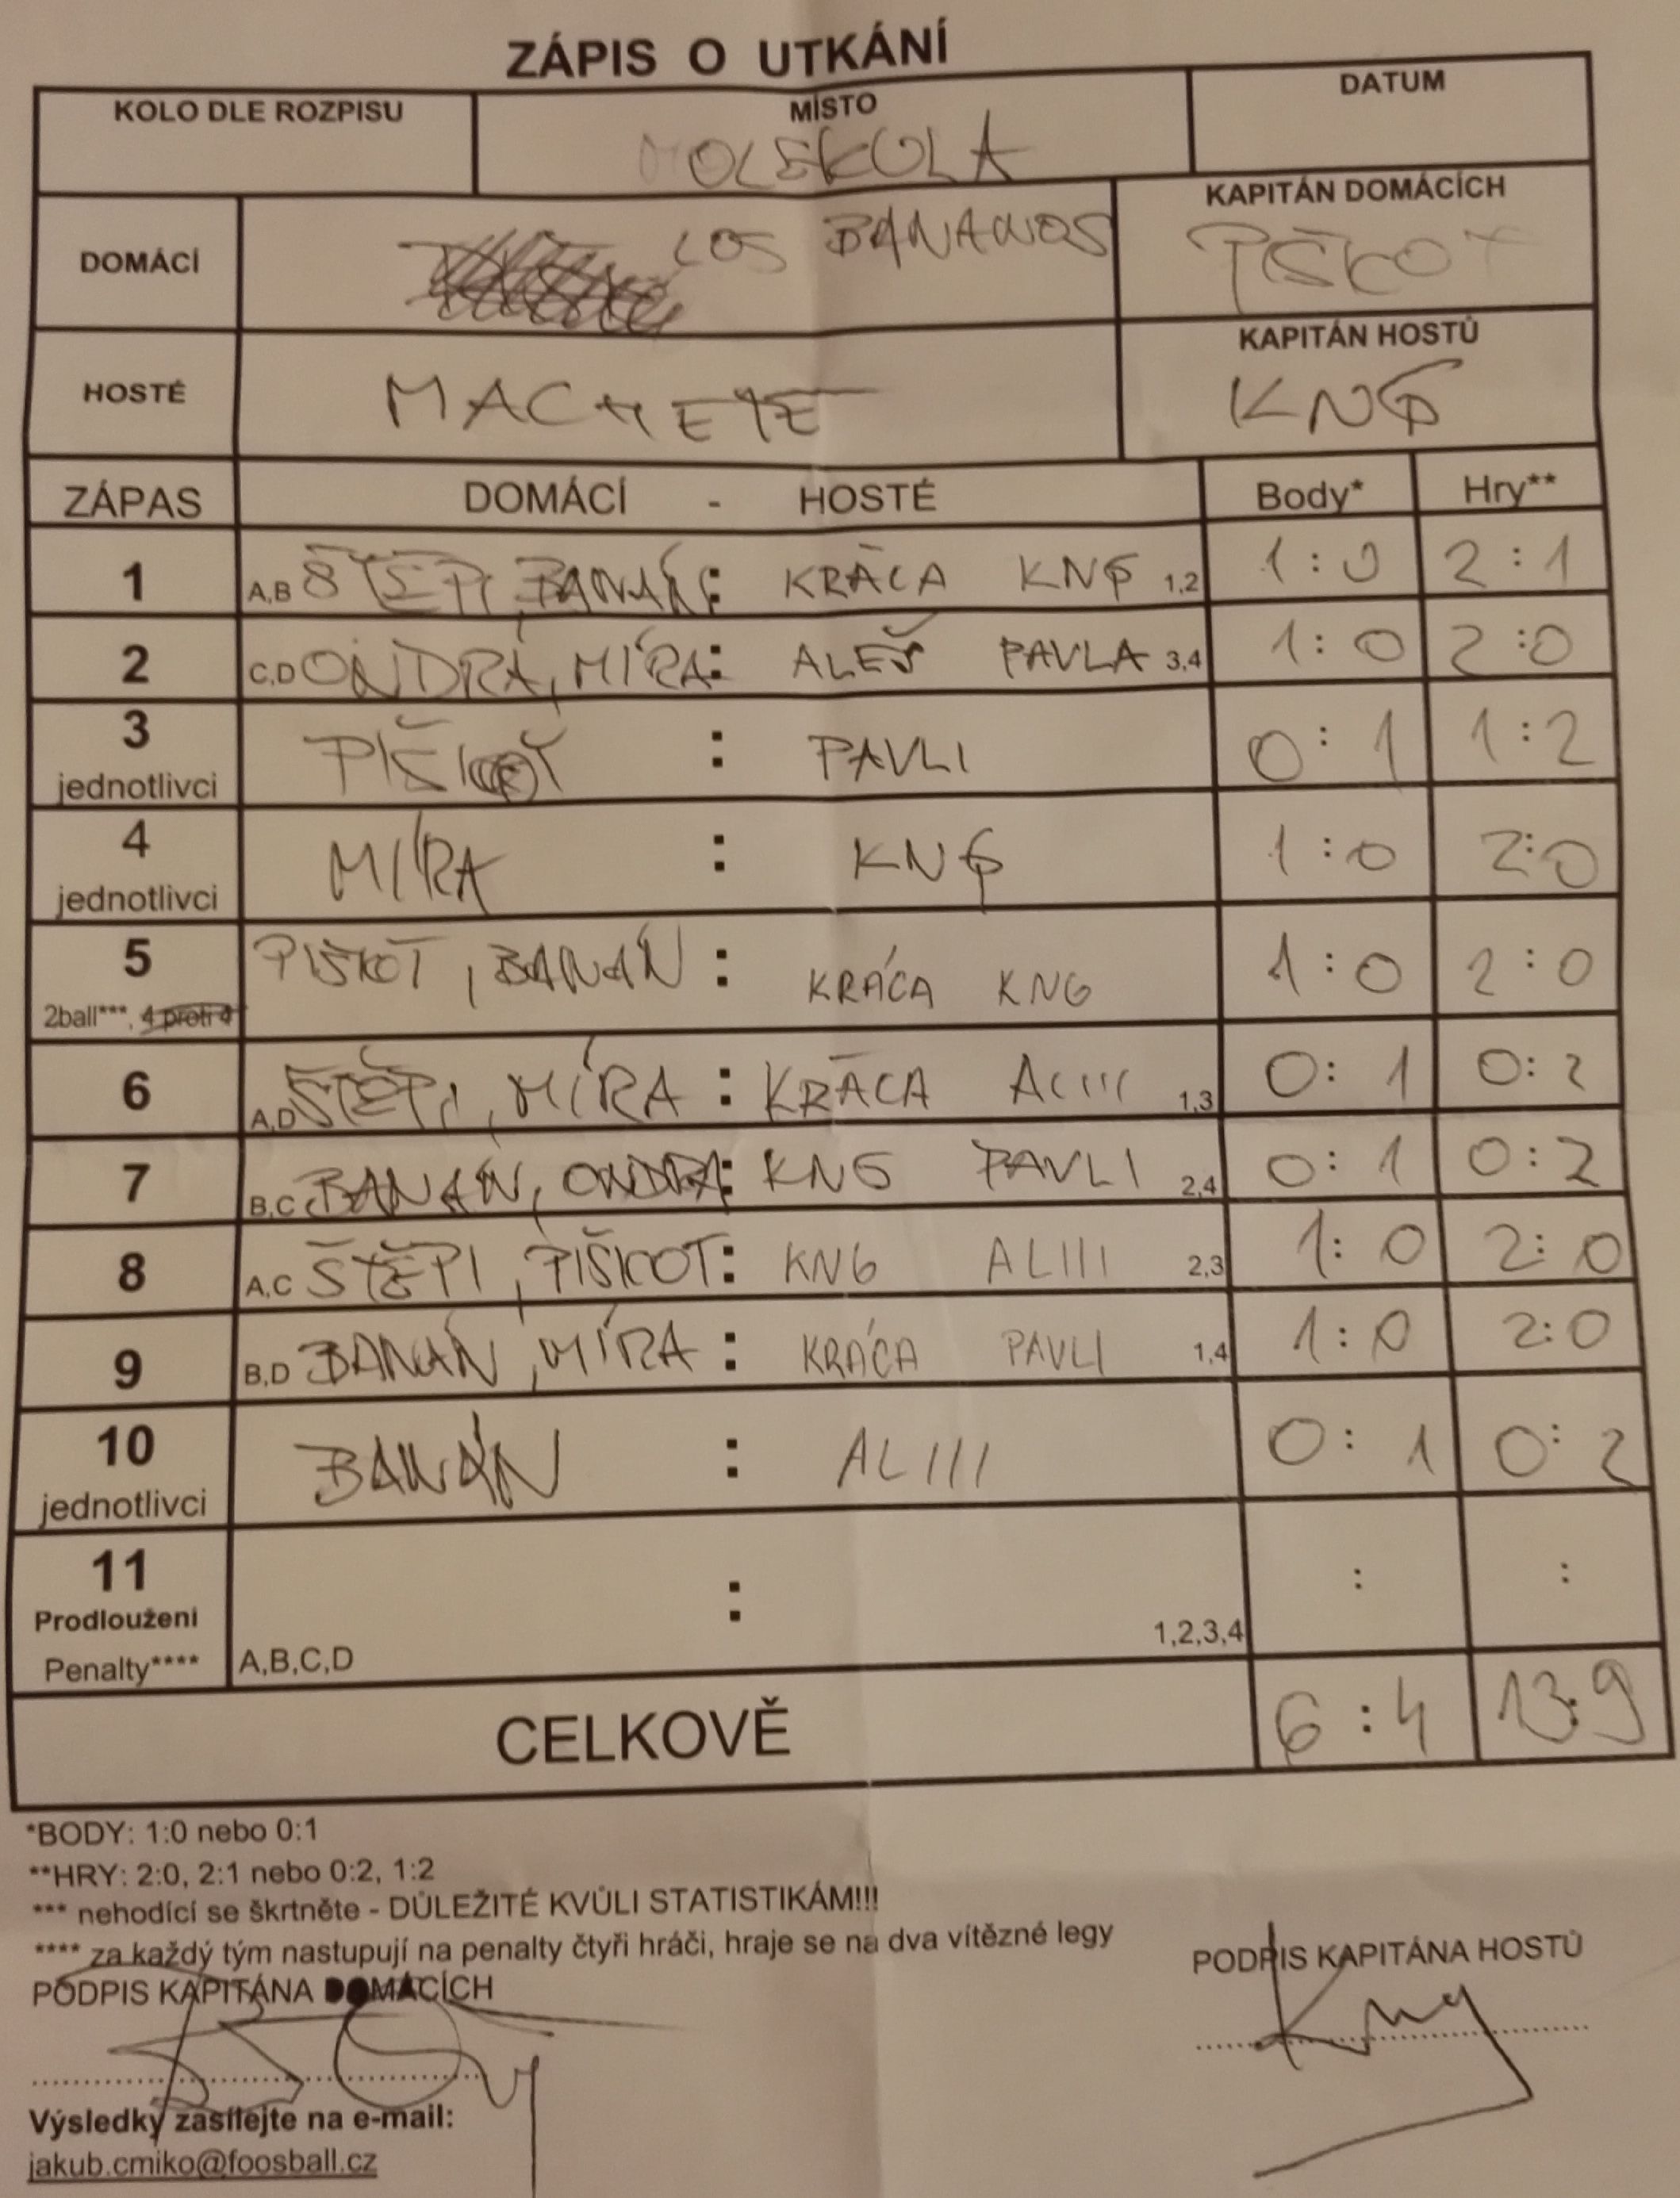 ZÁPIS O UTKÁNÍ
KOLO DLE ROZPISU MÍSTO DATUM
MOLEKOLA
DOMÁCÍ LOS BANANOS KAPITÁN DOMÁCÍCH
PIŠKOT
HOSTÉ MACHETE KAPITÁN HOSTŮ
KNG
ZÁPAS DOMÁCÍ - HOSTÉ Body* Hry**
1 A,B ŠTĚPI, BANÁN : KRÁCA KNG 1,2 1:0 2:1
2 C,D ONDRA, MÍRA : ALEŠ PAVLA 3,4 1:0 2:0
3 jednotlivci PIŠKOT : PAVLI 0:1 1:2
4 jednotlivci MÍRA : KNG 1:0 2:0
5 PIŠKOT, BANÁN : KRÁCA KNG 1:0 2:0
2ball***, 4 proti 4
6 A,D ŠTĚPI, MÍRA : KRÁCA ALIII 1,3 0:1 0:2
7 B,C BANÁN, ONDRA : KNG PAVLI 2,4 0:1 0:2
8 A,C ŠTĚPI, PIŠKOT : KNG ALIII 2,3 1:0 2:0
9 B,D BANÁN, MÍRA : KRÁCA PAVLI 1,4 1:0 2:0
10 jednotlivci BANÁN : ALIII 0:1 0:2
11 : : :
Prodloužení
Penalty**** A,B,C,D 1,2,3,4
CELKOVĚ 6:4 13:9
*BODY: 1:0 nebo 0:1
**HRY: 2:0, 2:1 nebo 0:2, 1:2
*** nehodící se škrtněte - DŮLEŽITÉ KVŮLI STATISTIKÁM!!!
**** za každý tým nastupují na penalty čtyři hráči, hraje se na dva vítězné legy
PODPIS KAPITÁNA DOMÁCÍCH PODPIS KAPITÁNA HOSTŮ
Kng
Výsledky zasílejte na e-mail:
jakub.cmiko@foosball.cz